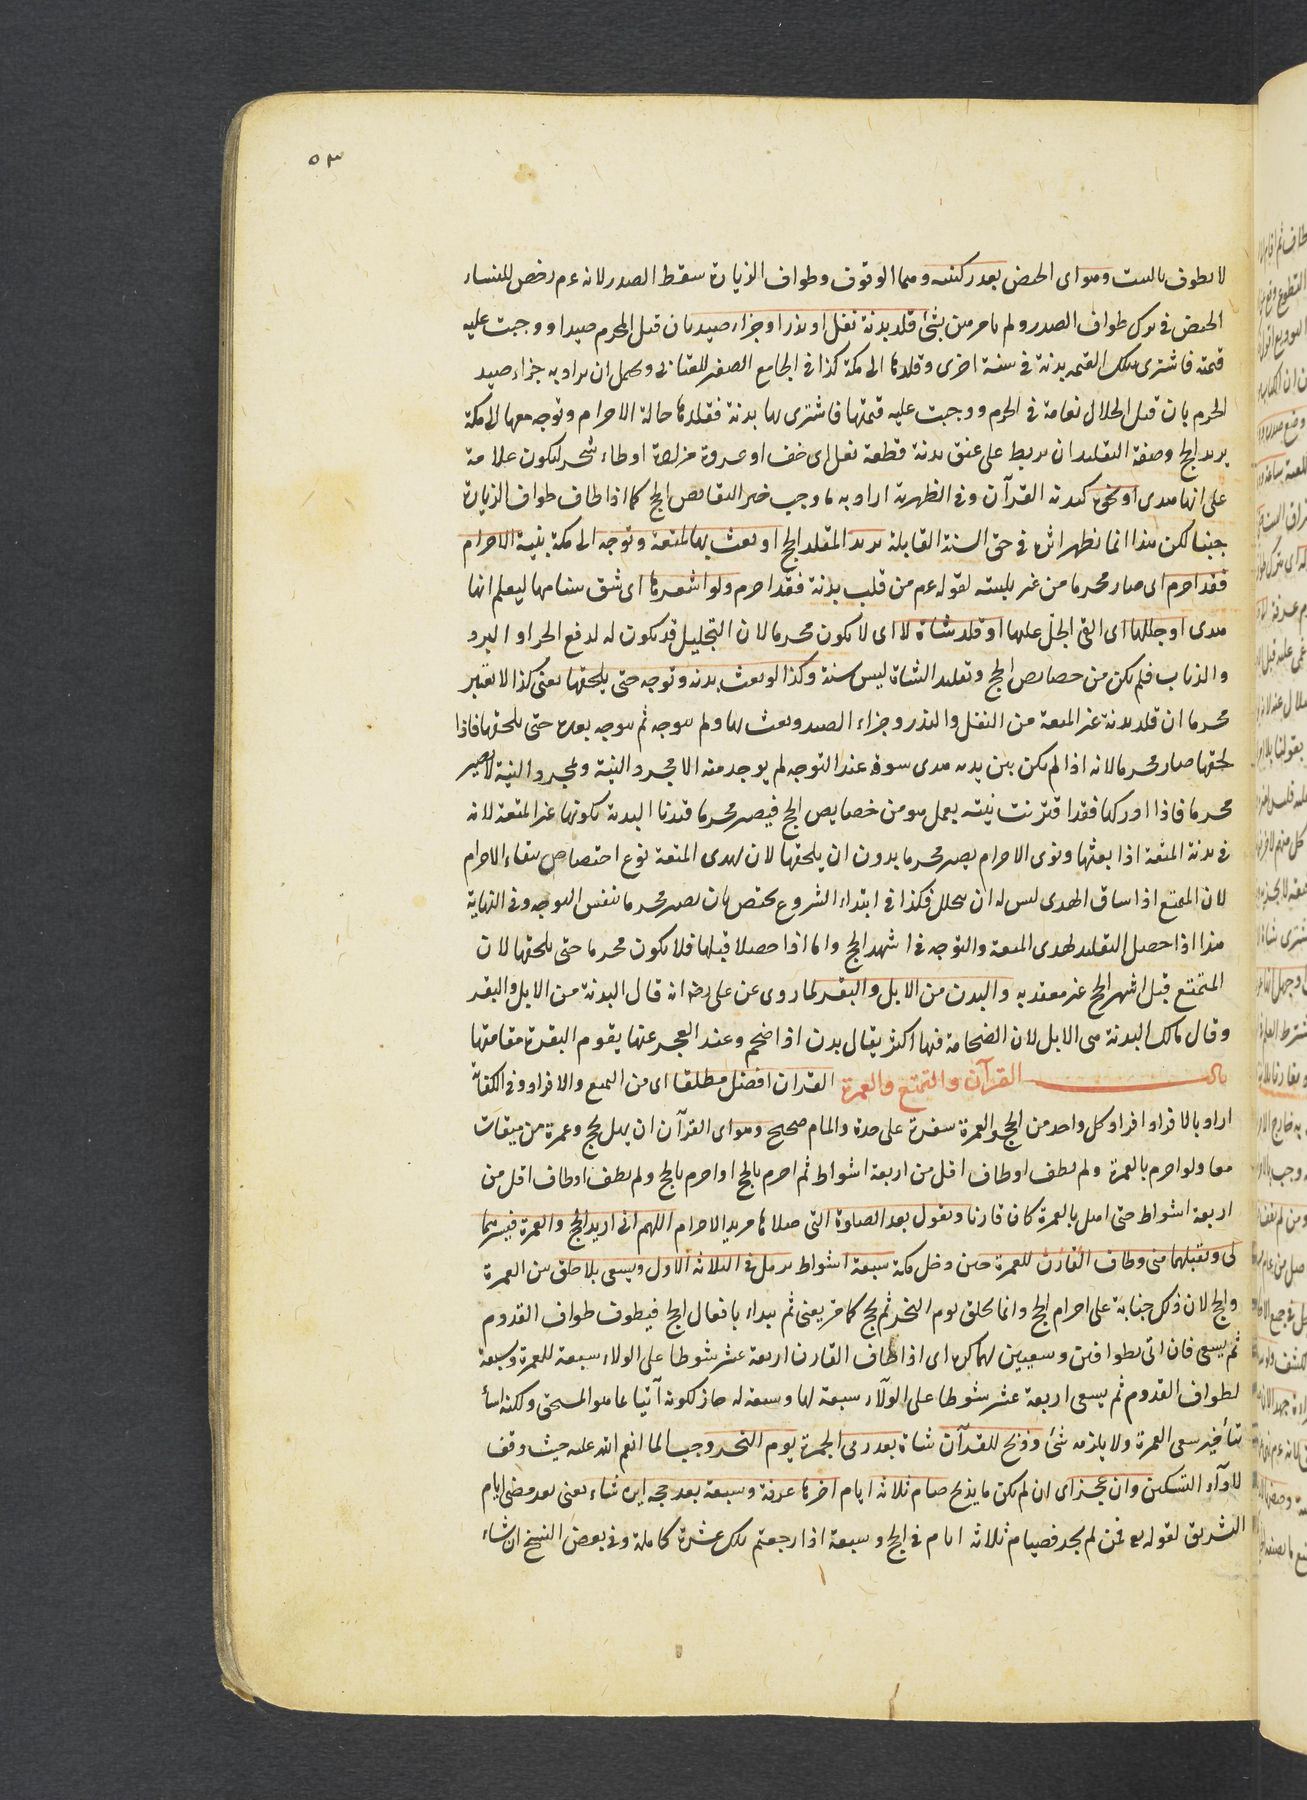 ٥٣
لا يطوف بالبيت وهو اى الحيض بعد ركنيه وهما الوقوف وطواف الزيارة سقط الصدر لانه عم رخص للنساء
الحيض فى ترك طواف الصدر ولم يأمرهن بشئ قلد بدنة نفل او نذر او جزاء صيد بان قتل المحرم صيدا ووجبت عليه
قيمته فاشترى بتلك القيمة بدنة فى سنة اخرى وقلدها الى مكة كذا فى الجامع الصغير للعتابى ويحتمل ان يراد به جزاء صيد
الحرم بان قتل الحلال نعامة فى الحرم ووجبت عليه قيمتها فاشترى بها بدنة فقلدها حالة الاحرام وتوجه معها الى مكة
يريد الحج وصفة التقليد ان يربط على عنق بدنة قطعة نعل اى خف او عروة مزادة او لحاء شجر ليكون علامة
على انها هدى او نحوه كبدنة القرآن وفى الظهرية اراد به ما وجب خبر النقايص الحج كما اذا طاف طواف الزيارة
جنبا لكن هذا انما يظهر اثره فى حق السنة القابلة يريد المقلد الحج او بعث بها لمتعة وتوجه الى مكة بنية الاحرام
فقد احرم اى صار محرما من غير تلبيته لقوله عم من قلب بدنة فقد احرم ولو اشعرها اى شق سنامها ليعلم انها
هدى او جللها اى القى الجل عليها او قلد شاة لا اى لا يكون محرما لان التجليل قد يكون له لدفع الحر او البرد
والذباب فلم يكن من خصايص الحج وتقليد الشاة ليس سنة وكذا لو بعث بدنه وتوجه حتى يلحقها يعنى كذا لا يعتبر
محرما ان قلد بدنة غير المتعة من النفل والنذر وجزاء الصيد وبعث بها ولم يتوجه ثم توجه بعده حتى يلحقها فاذا
لحقها صار محرما لانه اذا لم يكن بين يديه هدى سوقه عند التوجه لم يوجد منه الا مجرد النية وبمجرد النية لا يصير
محرما فاذا ادركها فقد اقترنت نيته بعمل هو من خصايص الحج فيصير محرما قيدنا البدنة بكونها غير المتعة لانه
فى بدنة المتعة اذا بعثها ونوى الاحرام يصير محرما بدون ان يلحقها لان لهدى المتعة نوع اختصاص ببقاء الاحرام
لان المتمتع اذا ساق الهدى ليس له ان يتحلل فكذا فى ابتداء الشروع يختص بان يصير محرما بنفس التوجه وفى النهاية
هذا اذا حصل التقليد لهدى المتعة والتوجه فى اشهر الحج واما اذا حصلا قبلها فلا يكون محرما حتى يلحقها لان
المتمتع قبل اشهر الحج غير معتد به والبدن من الابل والبقر لما روى عن على رضه انه قال البدنة من الابل والبقر
وقال مالك البدنة هى الابل لان الضخامة فيها اكثر يقال بدن اذا ضخم وعند العجز عنها يقوم البقرة مقامها
باب القرآن والتمتع والعمرة القران افضل مطلقا اى من التمتع والافراد وفى الكفاية
اراد بالافراد افراد كل واحد من الحج والعمرة سفرة على حدة والمام صحيح وهو اى القرآن ان يهل بحج وعمرة من ميقات
معا ولو احرم بالعمرة ولم يطف او طاف اقل من اربعة اشواط ثم احرم بالحج او احرم بالحج ولم يطف او طاف اقل من
اربعة اشواط حتى اهل بالعمرة كان قارنا ويقول بعد الصلوة التى صلاها مريد الاحرام اللهم انى اريد الحج والعمرة فيسرهما
لى وتقبلهما منى وطاف القارن للعمرة حين دخل مكة سبعة اشواط يرمل فى الثلاثة الاول ويسعى بلا حلق بين العمرة
والحج لان ذلك جناية على احرام الحج وانما يحلق يوم النحر ثم يحج كما مر يعنى ثم يبداء بافعال الحج فيطوف طواف القدوم
ثم يسعى فان اتى بطوافين وسعيين لهما كره اى اذا طاف القارن اربعة عشر شوطا على الولاء سبعة للعمرة وسبعة
لطواف القدوم ثم يسعى اربعة عشر شوطا على الولآء سبعة لها وسبعة له جاز لكونه آتيا بما هو المستحق ولكنه اسأ
بتأخير سعى العمرة ولا يلزمه شئ وذبح للقرآن شاة بعد رمى الجمرة يوم النحر وجب لما انعم الله عليه حيث وفق
لادآء النسكين وان عجز اى ان لم يكن ما يذبح صام ثلاثة ايام اخرها عرفة وسبعة بعد حجه اين شاء يعنى بعد مضى ايام
التشريق لقوله تع فمن لم يجد فصيام ثلاثة ايام فى الحج وسبعة اذا رجعتم تلك عشرة كاملة وفى بعض النسخ ان شاء